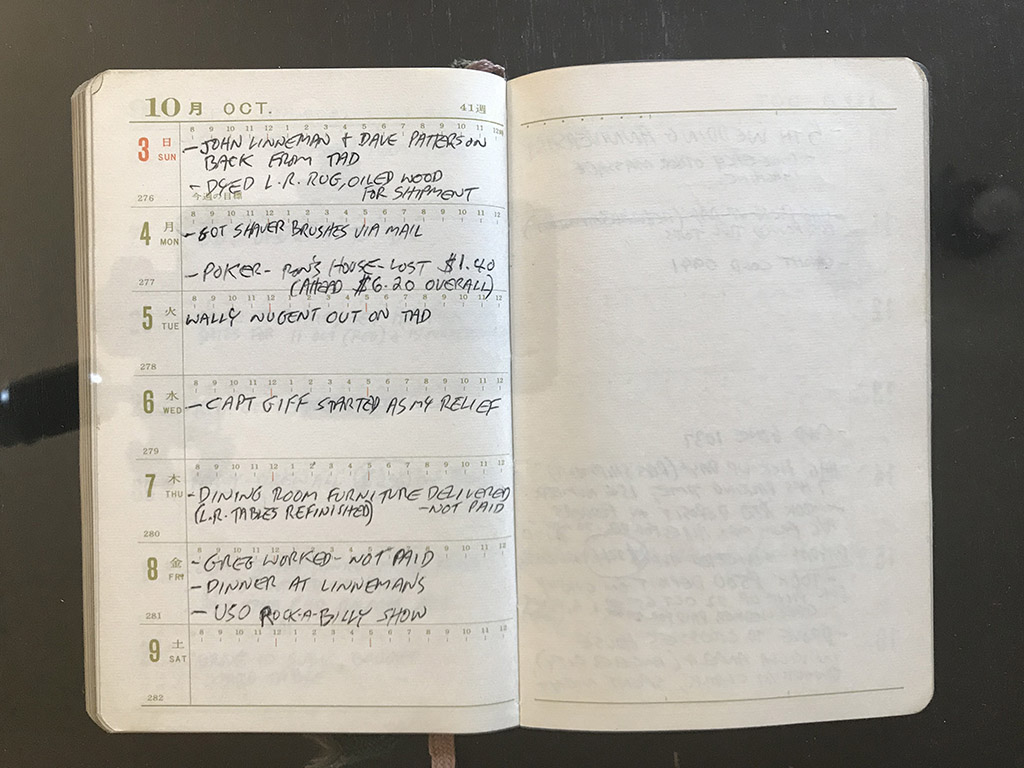 10月 OCT. 41週
8 9 10 11 12 1 2 3 4 5 6 7 8 9 10 11 12
3 日 SUN
- JOHN LINNEMAN & DAVE PATTERSON
BACK FROM TAD
- DYED L.R. RUG, OILED WOOD
FOR SHIPMENT
276 今週の目標
8 9 10 11 12 1 2 3 4 5 6 7 8 9 10 11 12
4 月 MON
- GOT SHAVER BRUSHES VIA MAIL
- POKER - RON'S HOUSE - LOST $1.40
(AHEAD $6.20 OVERALL)
277
8 9 10 11 12 1 2 3 4 5 6 7 8 9 10 11 12
5 火 TUE
WALLY NUGENT OUT ON TAD
278
8 9 10 11 12 1 2 3 4 5 6 7 8 9 10 11 12
6 水 WED
- CAPT GIFF STARTED AS MY RELIEF
279
8 9 10 11 12 1 2 3 4 5 6 7 8 9 10 11 12
7 木 THU
- DINING ROOM FURNITURE DELIVERED
(L.R. TABLES REFINISHED) - NOT PAID
280
8 9 10 11 12 1 2 3 4 5 6 7 8 9 10 11 12
8 金 FRI
- GREG WORKED - NOT PAID
- DINNER AT LINNEMANS
- USO ROCK-A-BILLY SHOW
281
8 9 10 11 12 1 2 3 4 5 6 7 8 9 10 11 12
9 土 SAT
282